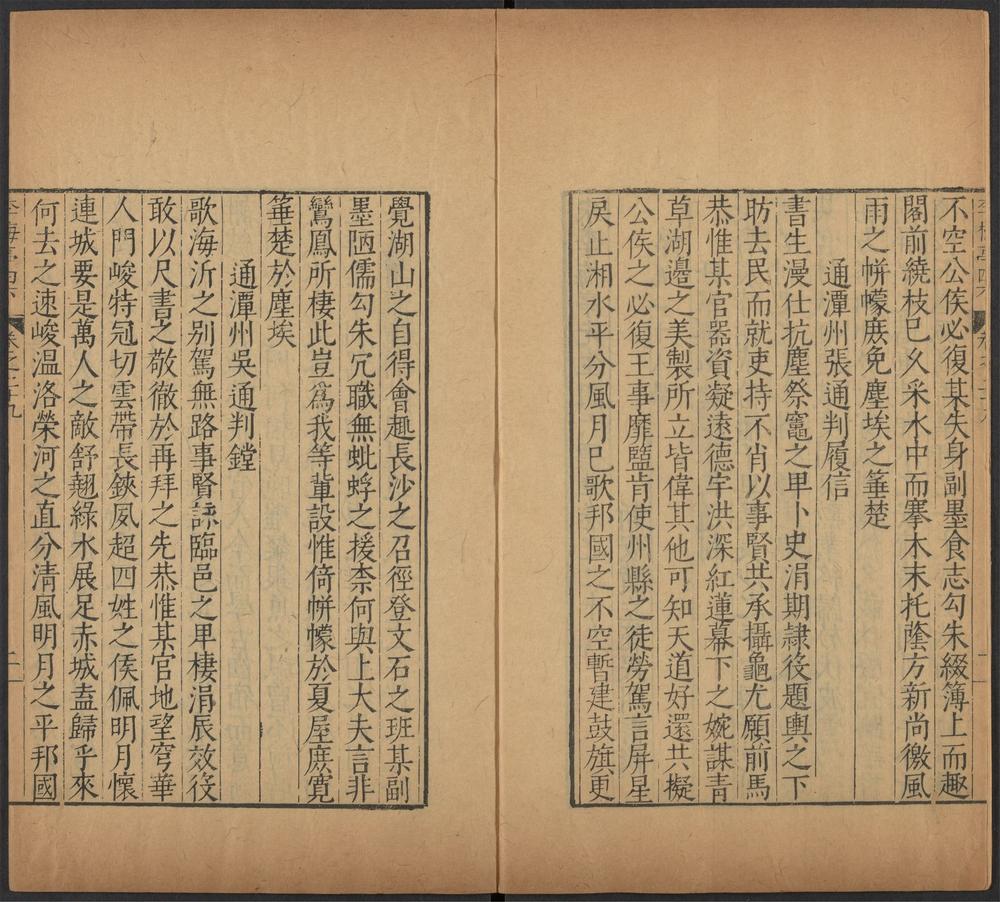 不空公侯必復某失身副墨食志勾朱綴簿上而趣
閣前繞枝已久采水中而搴木末托蔭方新尚徼風
雨之帡幪庶免塵埃之箠楚
通潭州張通判履信
書生漫仕抗塵祭竈之甲卜史涓期隷役題輿之下
昉去民而就吏持不肖以事賢共承攝龜尤願前馬
恭惟某官器資凝遠德宇洪深紅蓮幕下之婉謀青
草湖邊之美製所立皆偉其他可知天道好還共擬
公侯之必復王事靡盬肯使州縣之徒勞駕言屏星
戾止湘水平分風月已歌邦國之不空暫建鼓旗更
覺湖山之自得會趣長沙之召徑登文石之班某副
墨陋儒勾朱冗職無蚍蜉之援柰何與上大夫言非
鸞鳳所棲此豈爲我等輩設惟倚帡幪於夏屋庶寛
箠楚於塵埃
通潭州吳通判鏜
歌海沂之别駕無路事賢詠臨邑之甲棲涓辰效役
敢以尺書之敬徹於再拜之先恭惟某官地望穹華
人門峻特冠切雲帶長鋏夙超四姓之侯佩明月懷
連城要是萬人之敵舒翹綠水展足赤城盍歸乎來
何去之速峻温洛榮河之直分清風明月之平邦國
李梅亭四六 卷之二十九